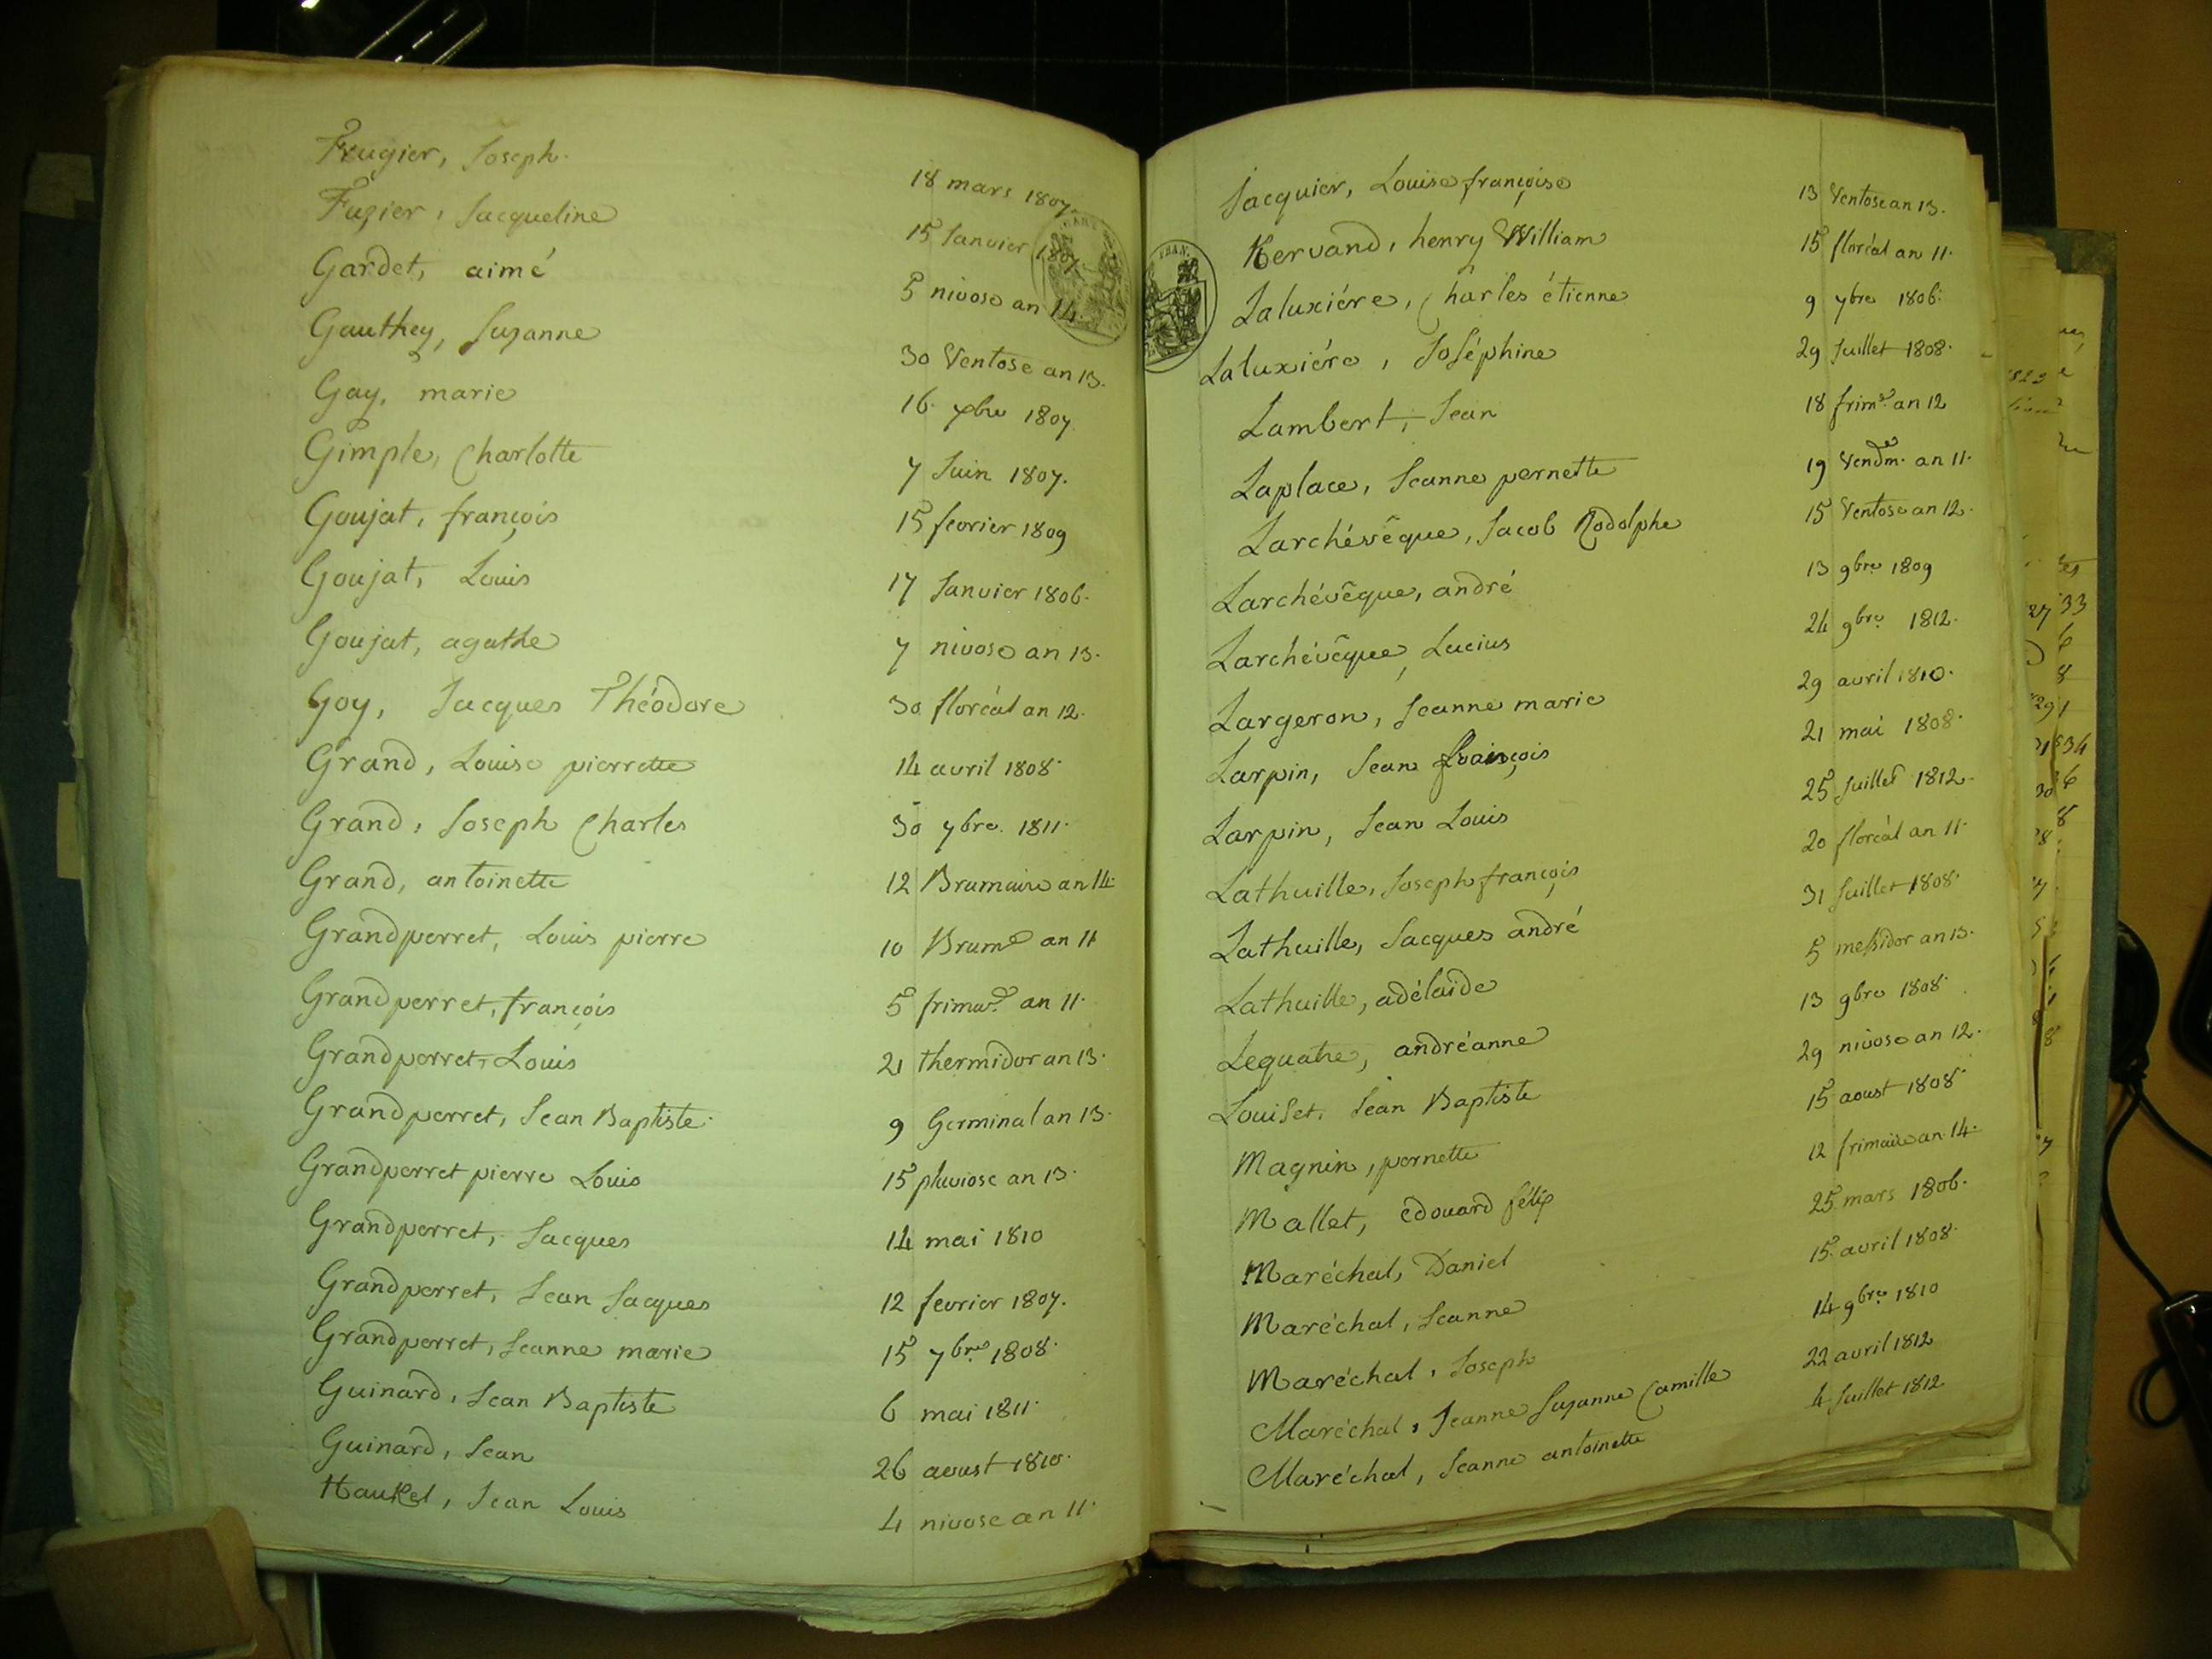 Frugier, Joseph. 18 mars 1807.
Fuzier, Jacqueline 15 Janvier 1807.
Gardet, aimé 5 nivose an 14.
Gauthey, Suzanne 30 Ventose an 13.
Gay, marie 16 7bre 1807.
Gimple, Charlotte 7 Juin 1807.
Goujat, françois 15 fevrier 1809
Goujat, Louis 17 Janvier 1806.
Goujat, agathe 7 nivose an 13.
Goy, Jacques Théodore 30 floréal an 12.
Grand, Louise pierrette 14 avril 1808.
Grand, Joseph Charles 30 7bre. 1811.
Grand, antoinette 12 Brumaire an 14.
Grandperret, Louis pierre 10 Brume an 11
Grandperret, françois 5 frimre. an 11.
Grandperret, Louis 21 thermidor an 13.
Grandperret, Jean Baptiste. 9 Germinal an 13.
Grandperret pierre Louis 15 pluviose an 13.
Grandperret, Jacques 14 mai 1810
Grandperret, Jean Jacques 12 fevrier 1807.
Grandperret, Jeanne marie 15 7bre 1808.
Guinard, Jean Baptiste 6 mai 1811.
Guinard, Jean 26 aoust 1810.
Haukel, Jean Louis 4 nivose an 11.
Jacquier, Louise françoise 13 Ventose an 13.
Kervand, henry William 15 floréal an 11.
Laluxiére, Charles étienne 9 7bre 1806.
Laluxiére, Joséphine 29 Juillet 1808.
Lambert, Jean 18 frimre. an 12
Laplace, Jeanne pernette 19 Vendm.re an 11.
Larchévêque, Jacob Rodolphe 15 Ventose an 12.
Larchévêque, andré 13 9bre 1809
Larchévêque, Lucius 24 9bre. 1812.
Largeron, Jeanne marie 29 avril 1810.
Larpin, Jean françois 21 mai 1808.
Larpin, Jean Louis 25 Juillet 1812.
Lathuille, Joseph françois 20 floréal an 11.
Lathuille, Jacques andré 31 Juillet 1808.
Lathuille, adélaïde 5 messidor an 13.
Lequatre, andréanne 13 9bre 1808.
Louiset, Jean Baptiste 29 nivose an 12.
Magnin, pernette 15 aoust 1808.
Mallet, édouard félix 12 frimaire an 14.
Maréchal, Daniel 25 mars 1806.
Maréchal, Jeanne 15 avril 1808.
Maréchal, Joseph 14 9bre 1810
Maréchal, Jeanne Suzanne Camille 22 avril 1812
Maréchal, Jeanne antoinette 4 Juillet 1812.
FRAN.